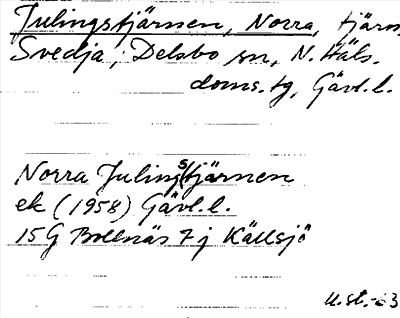 Julingstjärnen, Norra, tjärn,
Svedja, Delsbo sn, N. Häls.
doms. tg, Gävl. l.
Norra Julingstjärnen
ek (1958) Gävl. l.
15G Bollnäs 7 j Källsjö
U.st.-63